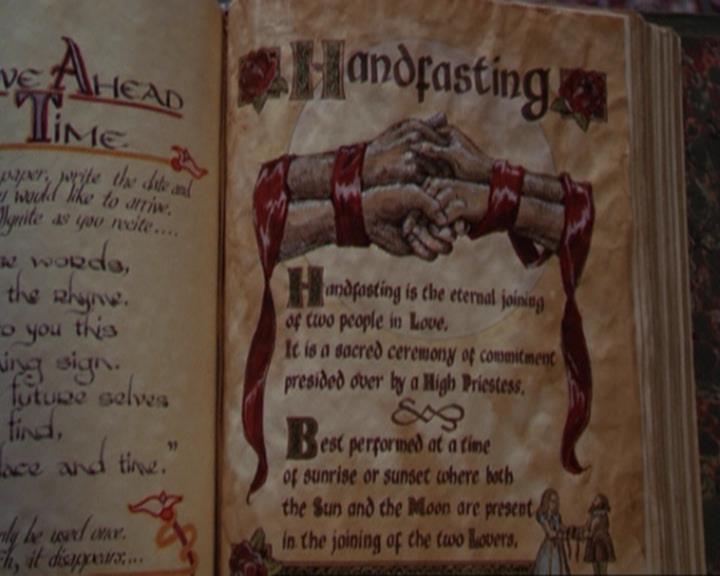 VE AHEAD
TIME
paper, write the date and
u would like to arrive.
Ignite as you recite....
words,
the rhyme.
o you this
ing sign.
future selves
find,
lace and time."
nly be used once.
h, it disappears....
Handfasting
Handfasting is the eternal joining
of two people in Love.
It is a sacred ceremony of commitment
presided over by a High Priestess.
Best performed at a time
of sunrise or sunset where both
the Sun and the Moon are present
in the joining of the two Lovers.